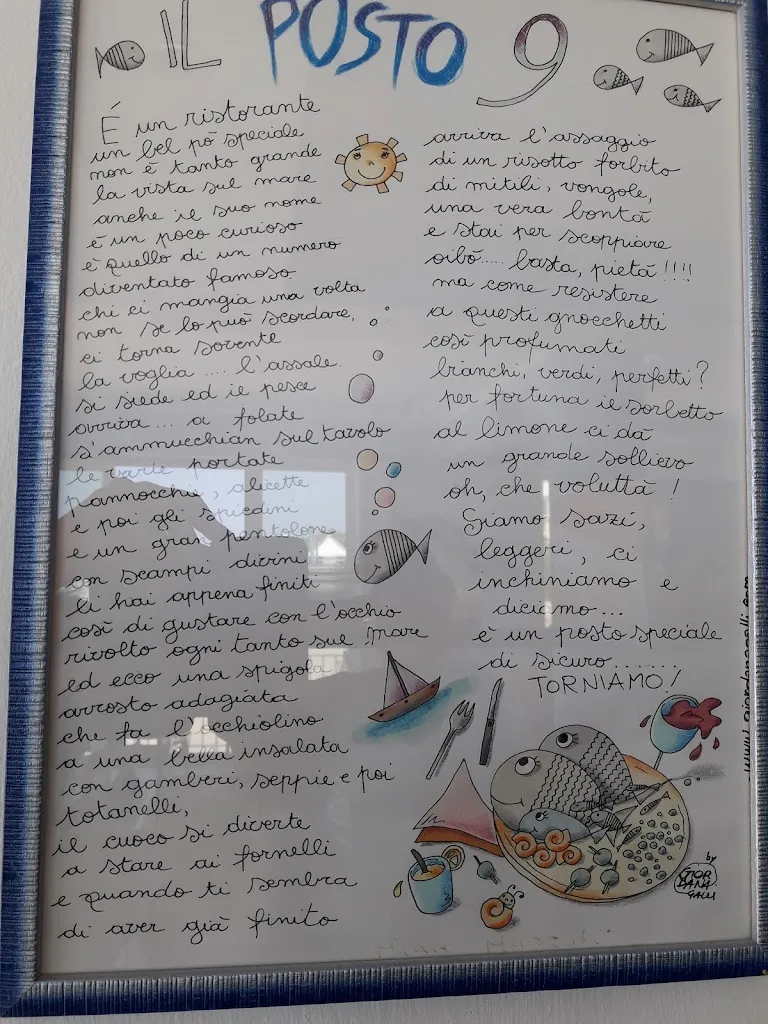 IL POSTO 9
É un ristorante
un bel pò speciale
non è tanto grande
la vista sul mare
anche il suo nome
è un poco curioso
è quello di un numero
diventato famoso
chi ci mangia una volta
non se lo può scordare,
ci torna sovente
la voglia .... l'assale.
si siede ed il pesce
arriva ... a folate
s'ammucchian sul tavolo
le varie portate
pannocchie, alicette
e poi gli spiedini
e un gran pentolone
con scampi divini
li hai appena finiti
così di gustare con l'occhio
rivolto ogni tanto sul mare
ed ecco una spigola
arrosto adagiata
che fa l'occhiolino
a una bella insalata
con gamberi, seppie e poi
totanelli,
il cuoco si diverte
a stare ai fornelli
e quando ti sembra
di aver già finito
arriva l'assaggio
di un risotto forbito
di mitili, vongole,
una vera bontà
e stai per scoppiare
oibò.... basta, pietà!!!!
ma come resistere
a questi gnocchetti
così profumati
bianchi, verdi, perfetti?
per fortuna il sorbetto
al limone ci dà
un grande sollievo
oh, che voluttà!
Siamo sazi,
leggeri, ci
inchiniamo e
diciamo...
è un posto speciale
di sicuro.......
TORNIAMO!
www.giordanagalli.com
by
GIOR
DANA
GALLI